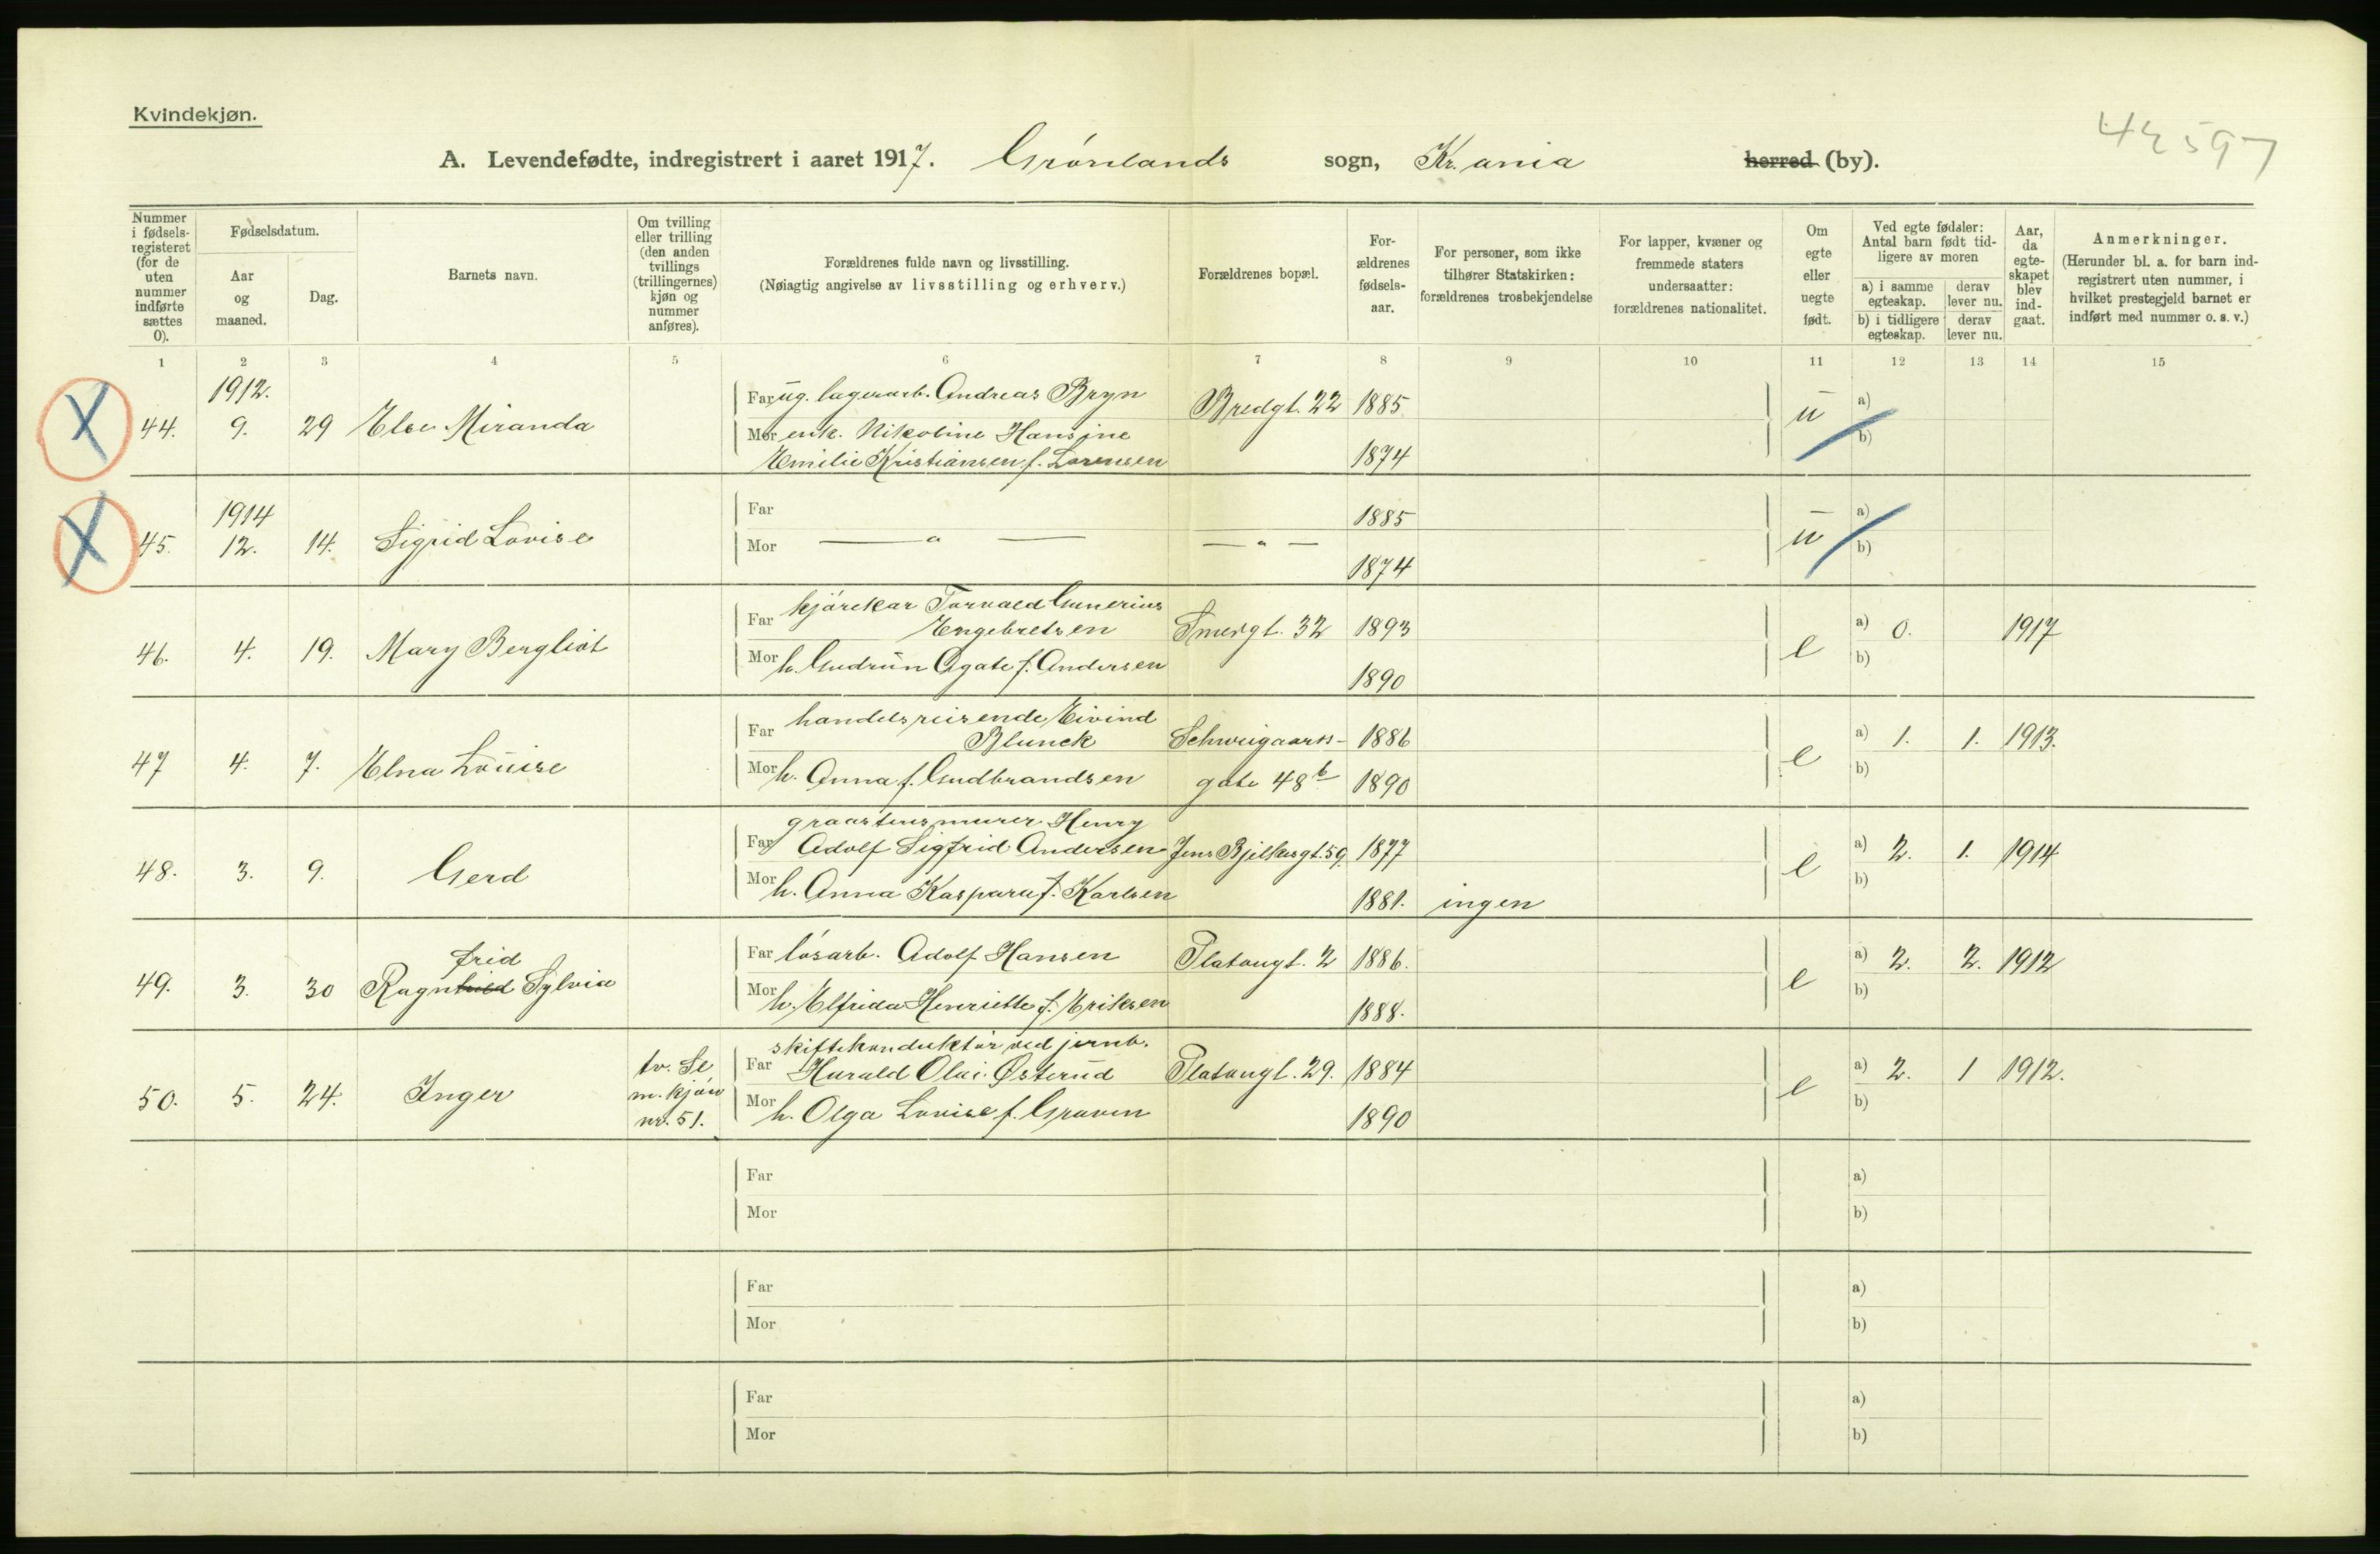 Kvindekjøn.
42597
A. Levendefødte, indregistrert i aaret 1917. Grønlands sogn, Kr.ania herred (by).
Nummer i fødselsregisteret (for de uten nummer indførte sættes 0).
Fødselsdatum.
Aar og maaned.
Dag.
Barnets navn.
Om tvilling eller trilling (den anden tvillings (trillingernes) kjøn og nummer anføres).
Forældrenes fulde navn og livsstilling.
(Nøiagtig angivelse av livsstilling og erhverv.)
Forældrenes bopæl.
Forældrenes fødselsaar.
For personer, som ikke tilhører Statskirken: forældrenes trosbekjendelse
For lapper, kvæner og fremmede staters undersaatter: forældrenes nationalitet.
Om egte eller uegte født.
Ved egte fødsler: Antal barn født tidligere av moren
a) i samme egteskap. derav lever nu.
b) i tidligere egteskap. derav lever nu.
Aar, da egteskapet blev indgaat.
Anmerkninger.
(Herunder bl. a. for barn indregistrert uten nummer, i hvilket prestegjeld barnet er indført med nummer o. s. v.)
1 2 3 4 5 6 7 8 9 10 11 12 13 14 15
1912.
44. 9. 29 Else Miranda
Far ug. lagerarb. Andreas Bryn Bredgt. 22 1885 u a)
Mor enk. Nikoline Hansine b)
Emilie Kristiansen f. Lorensen 1874
1914
45. 12. 14. Sigrid Lovise
Far 1885 u a)
Mor — " — — " — 1874 b)
46. 4. 19. Mary Bergliot
Far kjørekar Torvald Gunerius
Engebretsen Smedgt. 32 1893 e a) 0. 1917
Mor h. Gudrun Agate f. Andersen 1890 b)
47 4. 7. Elna Louise
Far handelsreisende Eivind
Blunck Schweigaards- 1886 e a) 1. 1. 1913.
Mor h. Anna f. Gudbrandsen gate 48 b 1890 b)
48. 3. 9. Gerd
graastensmurer Henry
Far Adolf Sigfrid Andersen Jens Bjelkesgt. 59. 1877 e a) 2. 1. 1914
Mor h. Anna Kaspara f. Karlsen 1881. ingen b)
49. 3. 30 Ragnhild frid Sylvia
Far løsarb. Adolf Hansen Platougt. 2 1886. e a) 2. 2. 1912
Mor h. Elfrida Henriette f. Eriksen 1888. b)
50. 5. 24. Inger tv. Se m. kjøn nr. 51.
skiftekonduktør ved jernb.
Far Harald Olai Østerud Platougt. 29. 1884 e a) 2. 1 1912.
Mor h. Olga Lovise f. Graven 1890 b)
Far a)
Mor b)
Far a)
Mor b)
Far a)
Mor b)